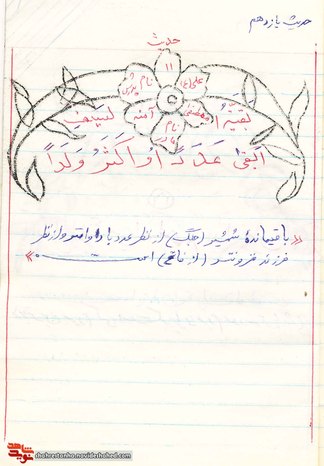 حدیث یازدهم
حدیث
۱۱
نام
نام
بقیَّةُ السیف
اَبقیٰ عَدَدًا وَ اَکثَرُ وَلَدًا
«باقیماندهٔ شمشیر (جنگ) از نظر عدد با دوامتر و از نظر
فرزند فزونتر (از نافع) است»
نوید شاهد
shohrestanha.navideshahed.com